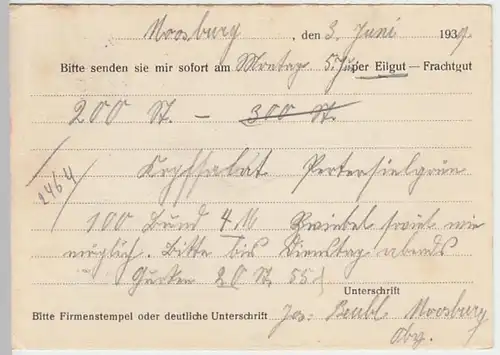 Moosburg, den 3. Juni 1939
Bitte senden sie mir sofort am Montag 5. Ju per Eilgut — Frachtgut
200 St. — 300 St.
2464
Kopfsalat Petersielgrün
100 Bund 4 M Zwiebel soviel wie
möglich. Bitte bis Dienstag abends
Gurken 20 St 55
Unterschrift
Bitte Firmenstempel oder deutliche Unterschrift Jos: Moosburg
Obg.